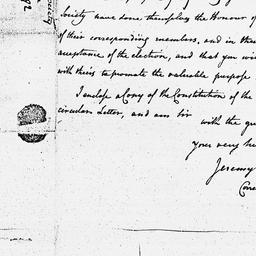 Society have done themselves the Honour of
of their corresponding members, and in their
acceptance of the election, and that you wi
with theirs to promote the valuable purpose
I enclose a Copy of the Constitution of the
circular Letter, and am Sir
with the gre
your very hu
Jeremy
Corre